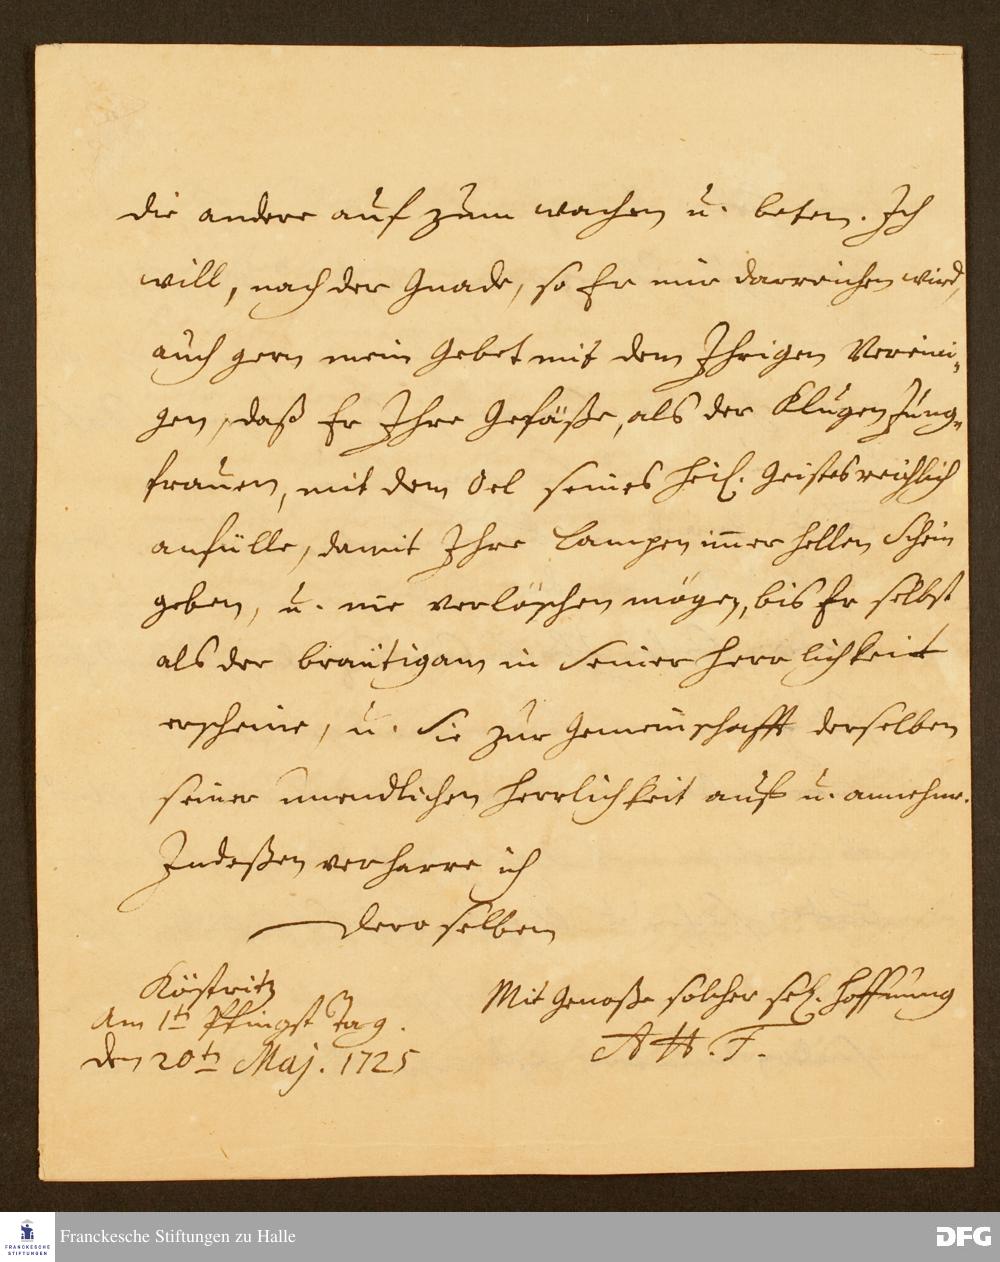 die andere auf zum wachen u. beten. Ich
will, nach der Gnade, so Er mir darreichen wird,
auch gern mein Gebet mit dem Ihrigen Vereini-
gen, daß Er Ihre Gefäße, als der Klugen Jung-
frauen, mit dem Oel seines heil. Geistes reichlich
anfülle, damit Ihre Lampen im̅er hellen Schein
geben, u. nie verlöschen mögen, bis Er selbst
als der bräutigam in Seiner Herrlichkeit
erscheine, u. Sie zur Gemeinschafft derselben
seiner unendlichen Herrlichkeit auf u. annehme.
Indeßen verharre ich
Deroselben
Köstritz
Am 1tn Pfingst Tag.
den 20tn Maj. 1725
Mit Genoße solcher sel. Hoffnung
A H. F.
Franckesche Stiftungen zu Halle
FRANCKESCHE
STIFTUNGEN
DFG